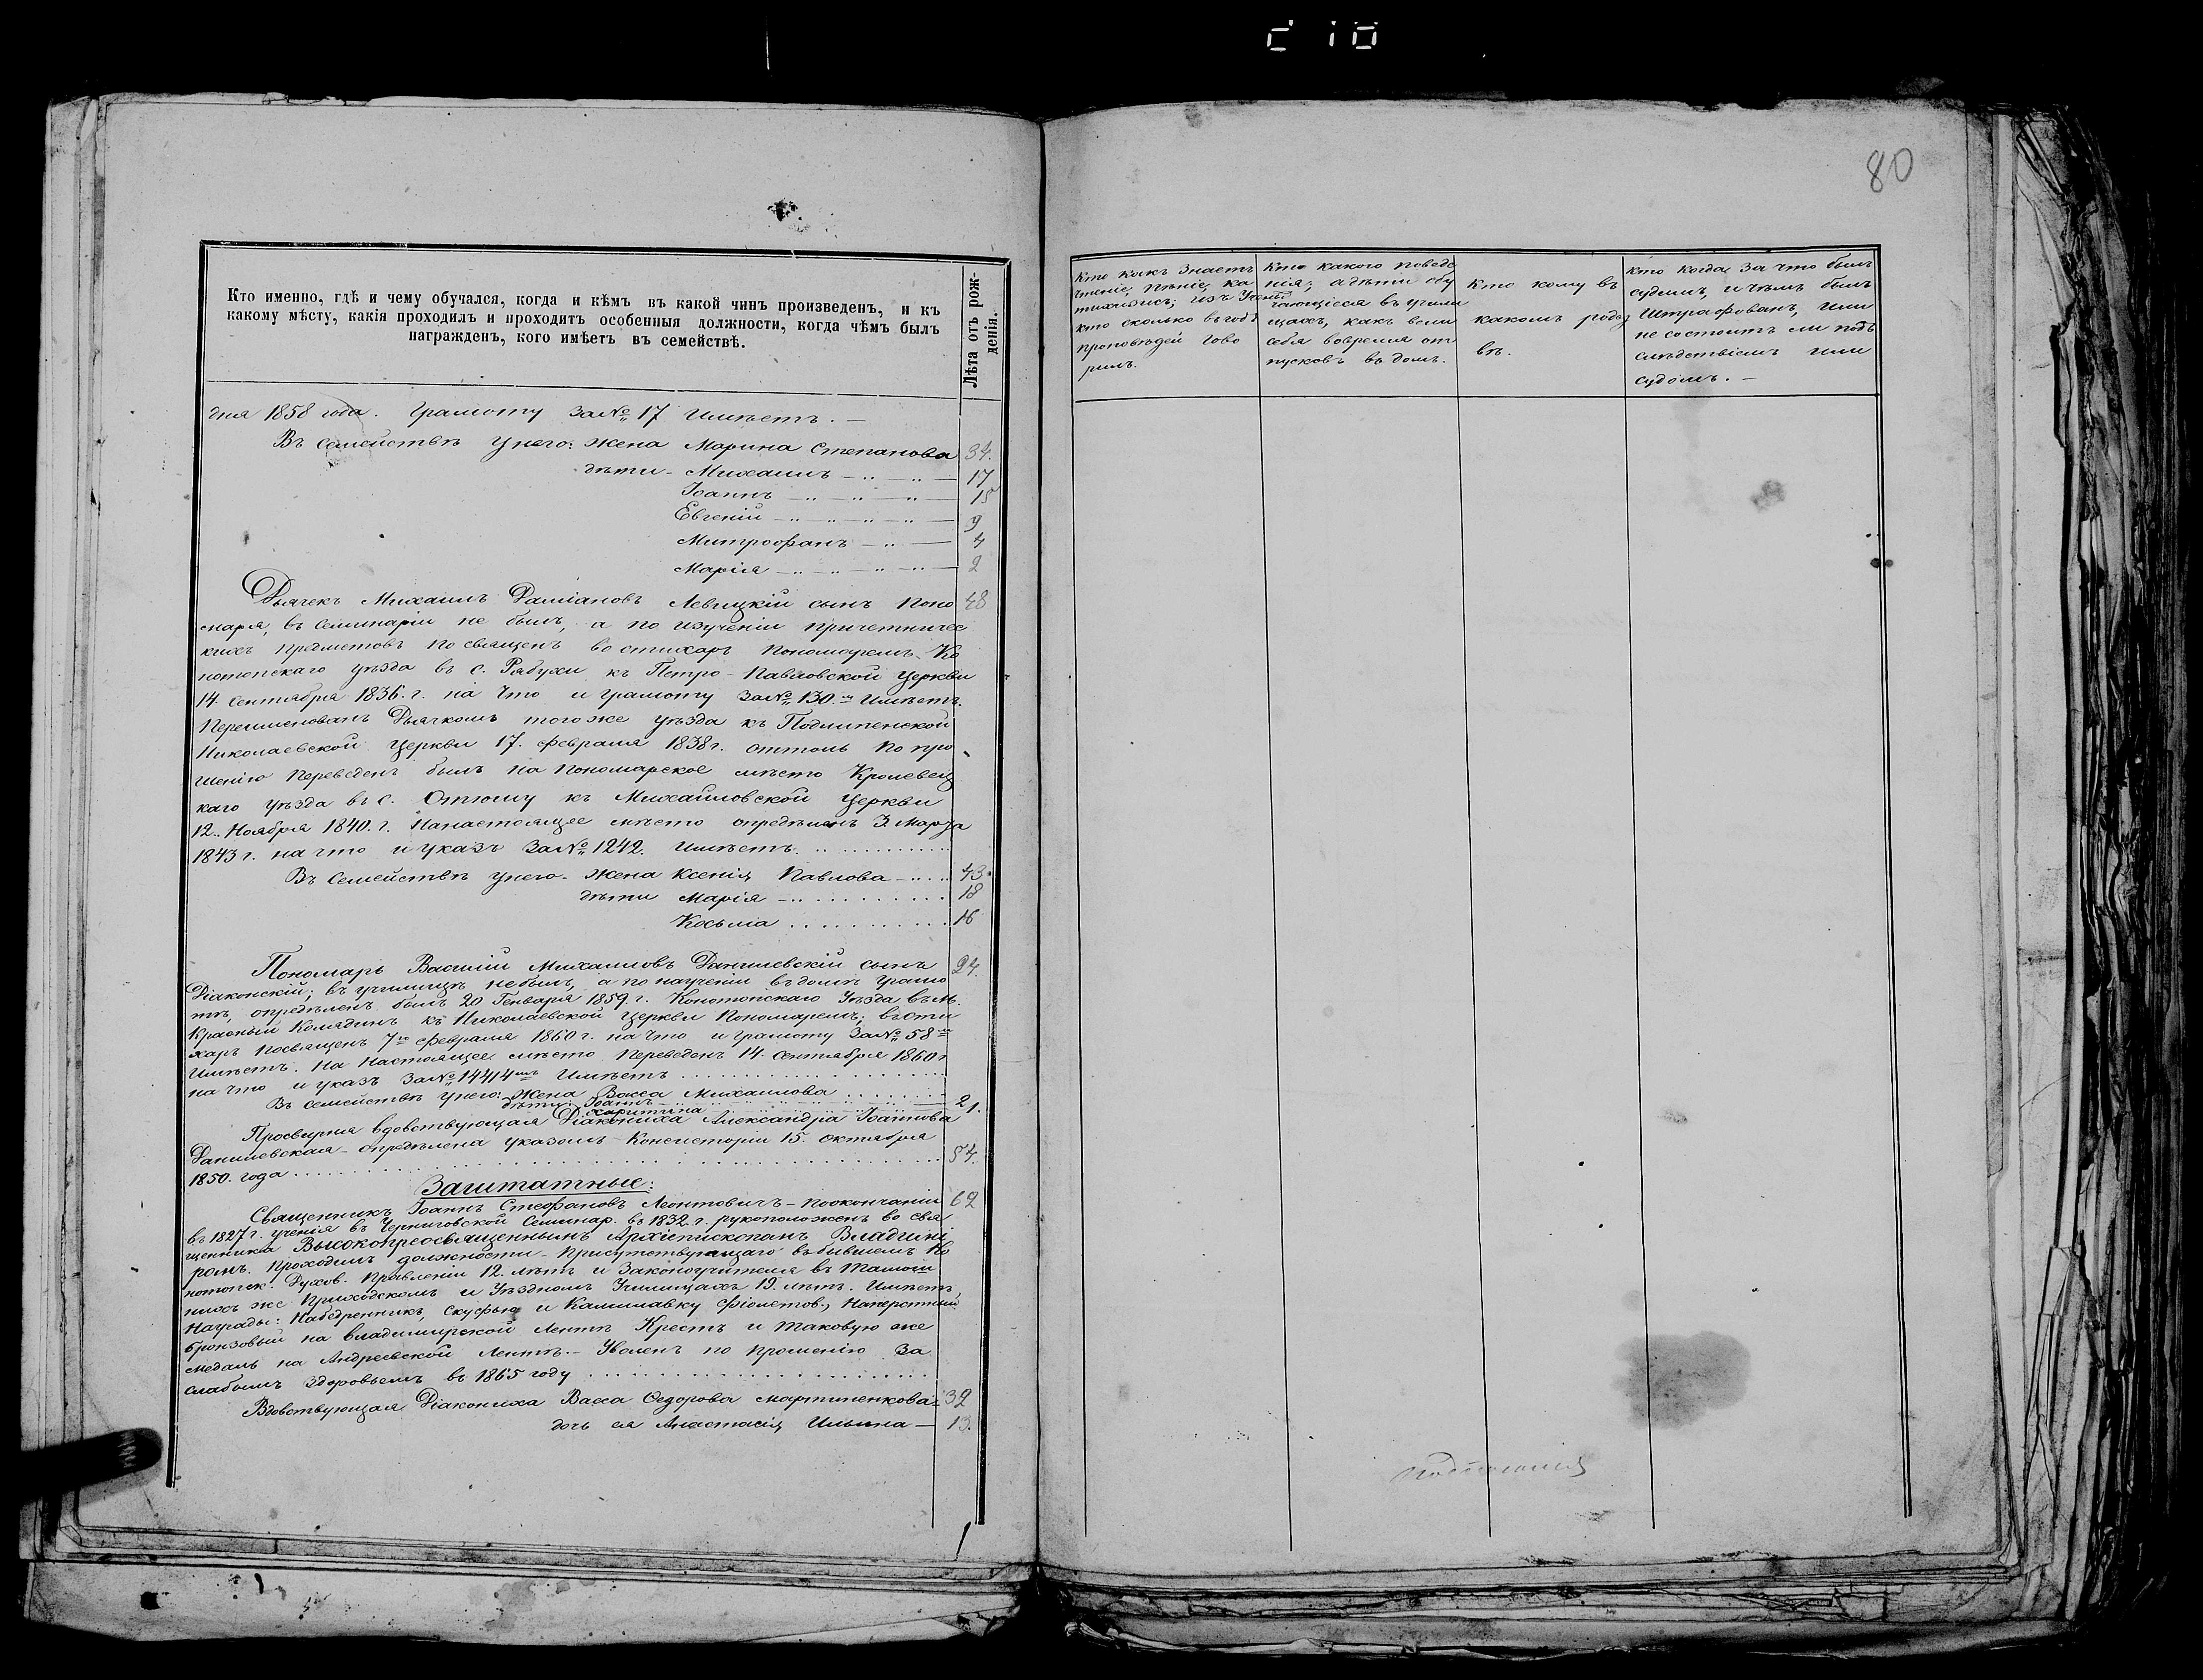 80
Кто именно, гдѣ и чему обучался, когда и кѣмъ въ какой чинъ произведенъ, и къ
какому мѣсту, какія проходилъ и проходитъ особенныя должности, когда чѣмъ былъ
награжденъ, кого имѣетъ въ семействѣ.
Лѣта отъ рож-
денія.
дня 1858 года. Грамоту за № 17 Имѣетъ. —
Въ Семействѣ у него: жена Марина Степанова 34.
дѣти - Михаилъ 17
Іоаннъ 15
Евгеній 9
Митрофанъ 4
Марія 2
Дьячекъ Михаилъ Даміановъ Левицкій сынъ Поно 48
маря, въ Семинаріи не былъ, а по изученіи причетничес
кихъ предметовъ посвященъ во стихарь Пономаремъ Ко
нотопскаго уѣзда въ с. Рябухи къ Петро-Павловской Церкви
14. Сентября 1836. г. на что и грамоту за № 130. Имѣетъ.
Переименованъ Дьячкомъ того же уѣзда къ Подлипенской
Николаевской Церкви 17. февраля 1838 г. оттоль по про
шенію переведенъ былъ на Пономарское мѣсто Кролевец
каго уѣзда въ с. Отюшу къ Михайловской Церкви
12. Ноября 1840. г. На настоящее мѣсто опредѣленъ 3. Марта
1843 г. на что и указъ за № 1242. Имѣетъ.
Въ Семействѣ у него - Жена Ксенія Павлова 43.
дѣти Марія 18
Косьма 16
Пономарь Василій Михаиловъ Данилевскій сынъ 24.
Діаконскій; въ училищѣ небылъ, а по научѣніи въ домѣ грамо
тѣ, опредѣленъ былъ 20 Генваря 1859. г. Конотопскаго Уѣзда въ м.
Красный Колядинъ къ Николаевской Церкви Пономаремъ; въ сти
харь посвященъ 7го февраля 1860 г. на что и грамоту за № 58
Имѣетъ. На настоящее мѣсто переведенъ 14. Сентября 1860 г
на что и указъ за № 14414 Имѣетъ
Въ семействѣ у него: Жена Васса Михаилова
дѣти: Іоаннъ 2
Харитина 1.
Просвирня вдовствующая Діакониха Александра Іоаннова
Данилевская - опредѣлена указомъ Консисторіи 15. Октября
1850. года 54.
Заштатные:
Священникъ Іоаннъ Стефановъ Леонтовичъ - по окончаніи 62
въ 1827 г. ученія въ Черниговской Семинар. въ 1832. г. рукоположенъ во свя
щенника Высокопреосвященнымъ Архіепископомъ Владими
ромъ. Проходилъ должности - Присутствующаго въ бывшемъ Ко
нотопск. Духов. Правленіи 12. лѣтъ и Законоучителя въ тамош
нихъ же Приходскомъ и Уѣздномъ Училищахъ 19. лѣтъ. Имѣетъ
Награды: Набедренникъ, скуфью и Камилавку фіолетов., Наперстный
бронзовый на Владимирской лентѣ Крестъ и таковую же
медаль на Андреевской лентѣ. - Уволенъ по прошенію за
слабымъ здоровьемъ въ 1865 году
Вдовствующая Діакониха Васса Ѳедорова Мартиненкова 32
дочь ея Анастасія Ильина — 13.
Кто какъ знаетъ
чтеніе, пѣніе, ка
тихизисъ; изъ Ученых
кто сколько въ годъ
проповѣдей гово
рилъ.
Кто какого поведе
нія; а дѣти обу
чающіеся въ учили
щахъ, какъ вели
себя вовремя от
пусковъ въ домъ.
Кто кому въ
какомъ родст
вѣ.
Кто когда за что былъ
судимъ, и чѣмъ былъ
Штрафованъ, или
не состоитъ ли подъ
слѣдствіемъ или
судомъ. —